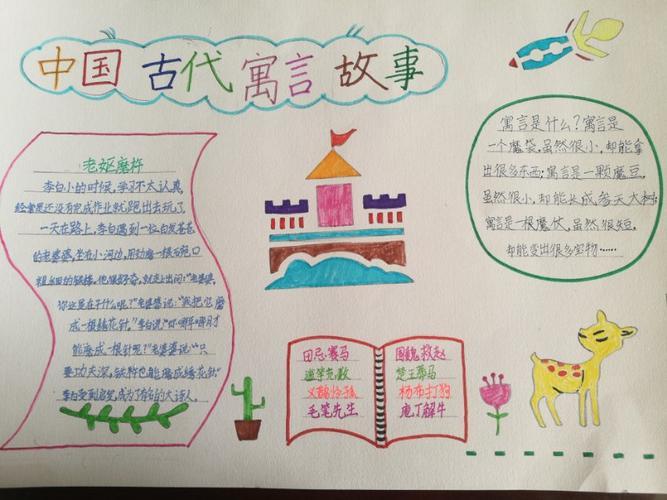 中国古代寓言故事
老妪磨杵
李白小的时候，学习不太认真
经常是还没有完成作业就跑出去玩了
一天在路上，李白遇到一位白发苍苍
的老婆婆，坐在小河边，用劲磨一根
粗的铁棒。他很好奇，就走上去问："老婆婆，
你这是在干什么呢？"老婆婆说："我把它磨
成一根绣花针。"李白说："你哪年哪月才
能磨成一根针呢？"老婆婆说："只
要功夫深，铁杵也能磨成绣花针"
李白受到启发，成为了有名的大诗人。
寓言是什么？寓言是
一个魔袋，虽然很小，却能拿
出很多东西；寓言是一颗魔豆，
虽然很小，却能长成参天大树；
寓言是一根魔仗，虽然很短，
却能变出很多宝物……
田忌赛马
毛笔先生
围魏救赵
杨布打狗
庖丁解牛